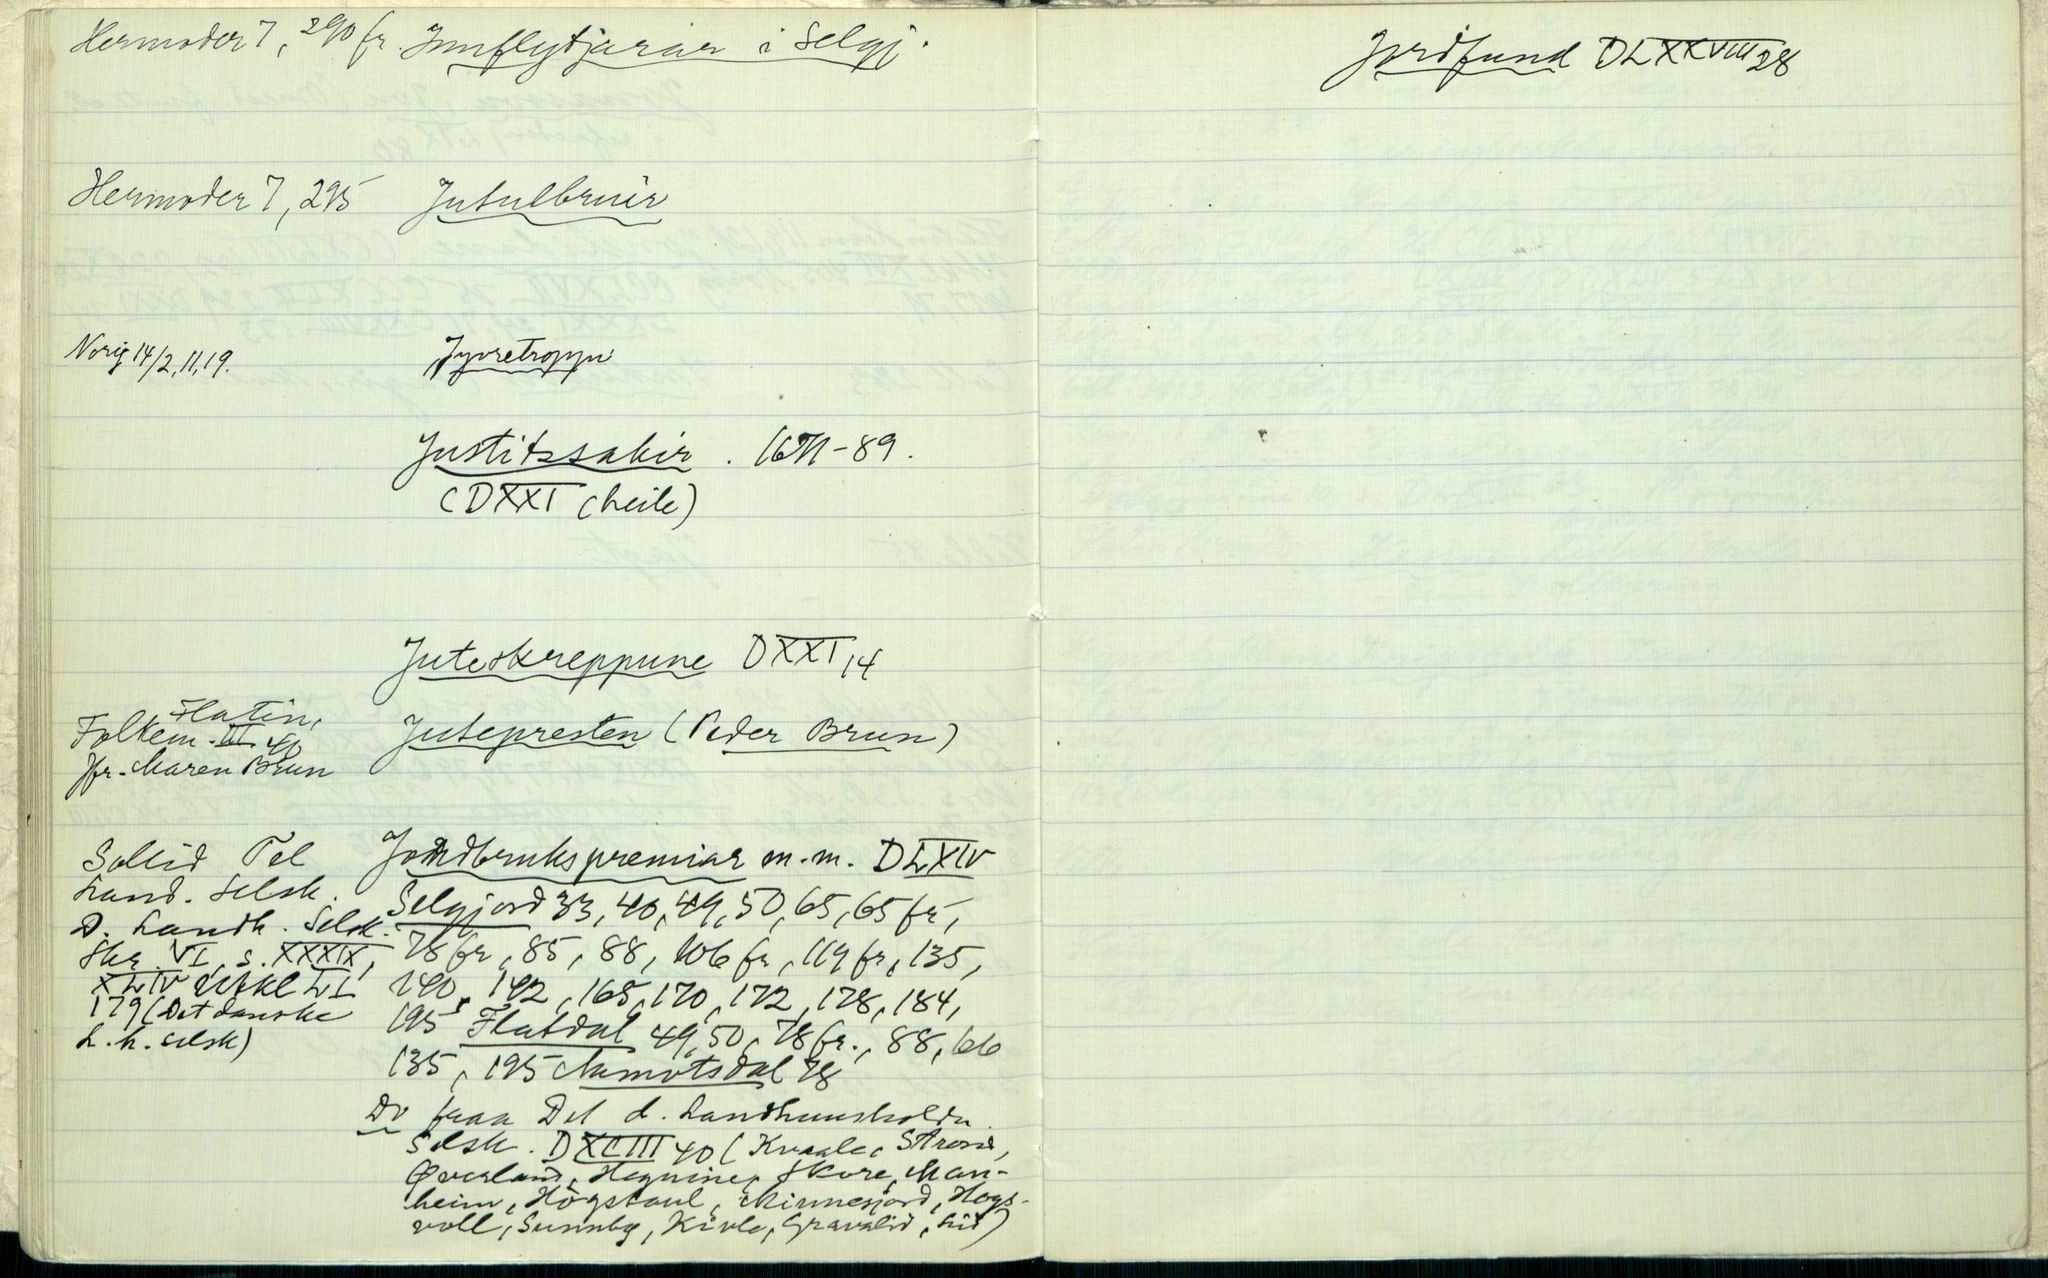 Hermoder 7, 290 fr. Innflytjarar i Selgj.
Hermoder 7, 295 Jutulbruir
Norig 14/2, 11, 19. Jyvretroppu
Justitssakir. 1671-89.
(DXXI (heile)
Juteskreppune DXXI 14
Flatin,
Folkem. III 40 Jutepresten (Peder Brun)
Jfr. Maren Brun
Sollid Tel Jordbrukspremiar m.m. DLXIV
Land. Selsk. Selgjord 33, 40, 49, 50, 65, 65 fr,
D. Landh. Selsk. 78 fr, 85, 88, 106 fr, 119 fr, 135,
Skr. VI, s. XXXIX, 140, 142, 165, 170, 172, 178, 184,
XLIV LI 195 Flatdal 49, 50, 78 fr., 88, 66
179 (Det danske 135, 195 Aamotsdal 78
L. h. selsk)
Do fraa Det d. Landhuusholdn.
Selsk. DXCIII 40 (Kvaale, Strond,
Øverland, Hegnine, Skore, Man-
heim, Högstaul, Minnesjord, Hogs-
voll, Sunnby, Kivle, Gravalid, Lid)
Jordfund DLXXVIII 28